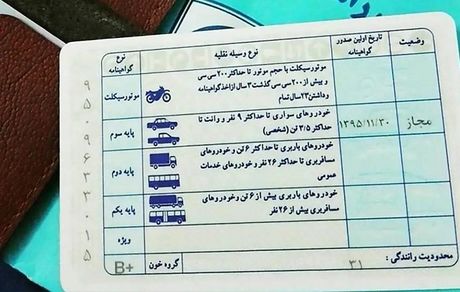 وضعیت
تاریخ اولین صدور گواهینامه
نوع وسیله نقلیه
نوع گواهینامه
موتورسیکلت با حجم موتور تا حداکثر ۲۰۰ سی سی
و بیش از ۲۰۰ سی سی گذشت ۳ سال از اخذ گواهینامه
و داشتن ۲۳ سال تمام
موتورسیکلت
مجاز
۱۳۹۵/۱۱/۳۰
خودروهای سواری تا حداکثر ۹ نفر و وانت تا
حداکثر ۳/۵ تن (شخصی)
پایه سوم
خودروهای باربری تا حداکثر ۶ تن و خودروهای
مسافربری تا حداکثر ۲۶ نفر و خودروهای خدمات
عمومی
پایه دوم
خودروهای باربری بیش از ۶ تن و خودروهای
مسافربری بیش از ۲۶ نفر
پایه یکم
ویژه
محدودیت رانندگی :
۳۱
گروه خون
B+
۹
۵
۰
۹
۶
۳
۳
۰
۱
۵